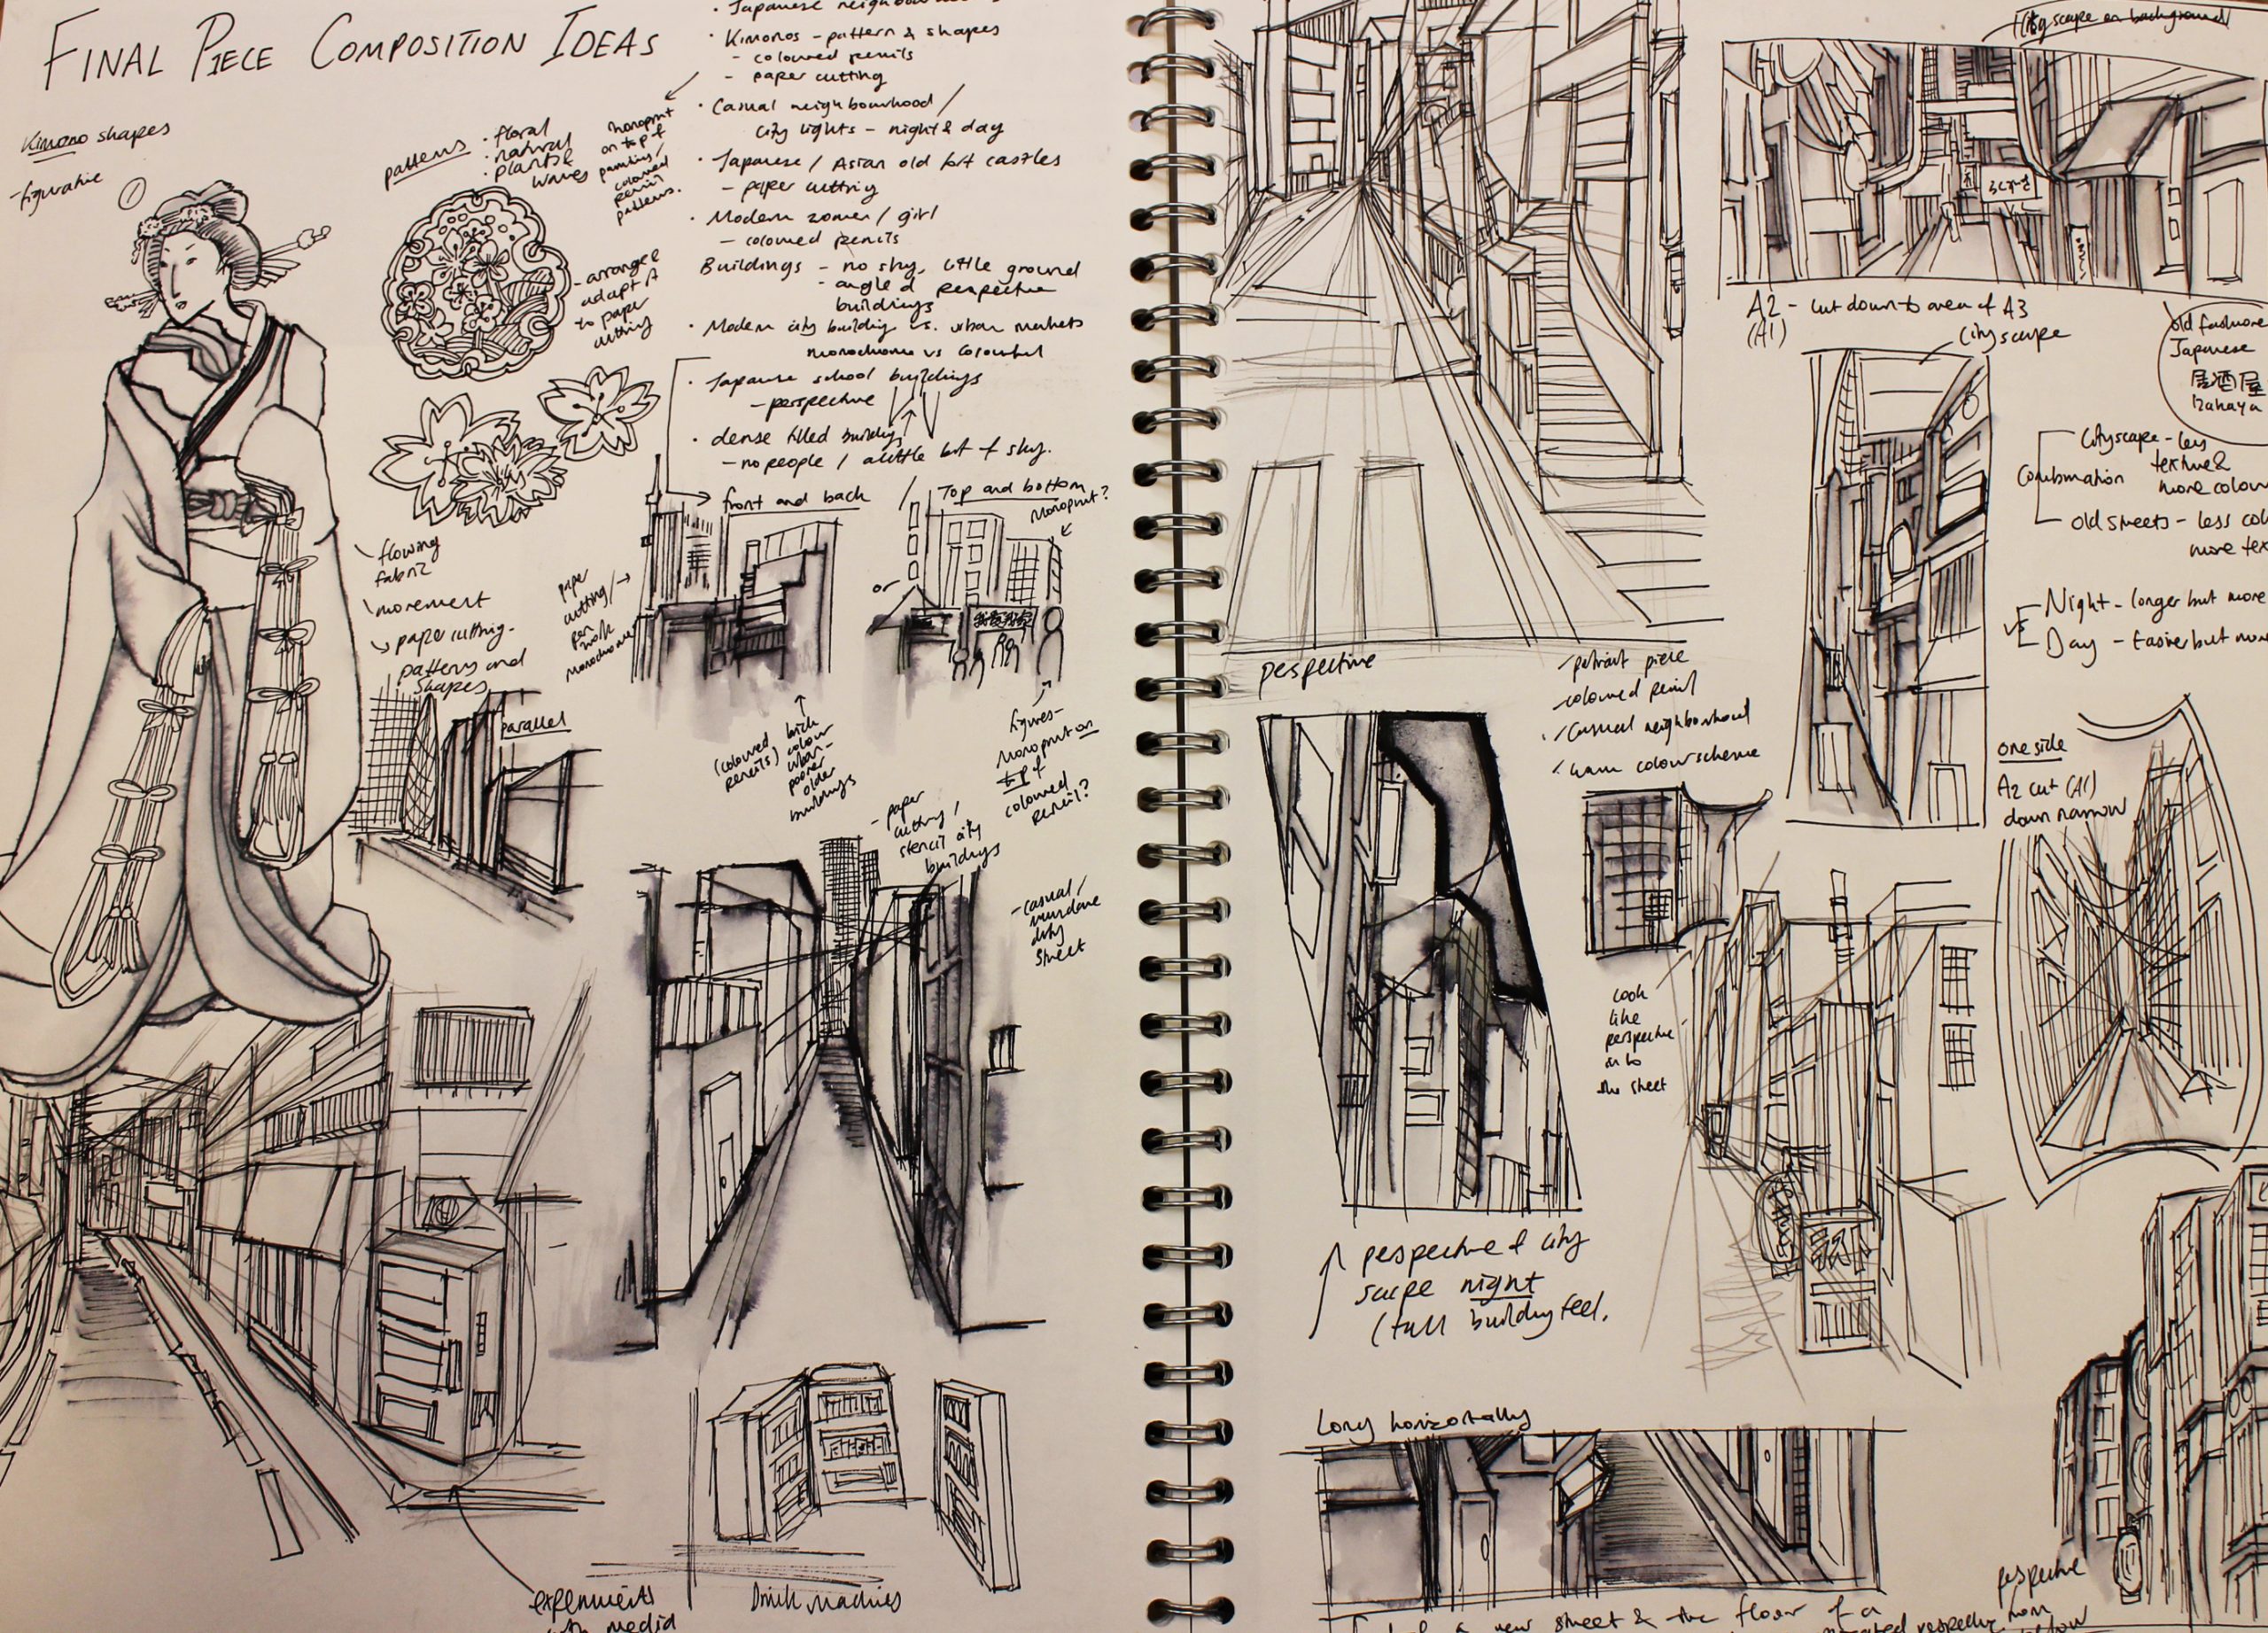 FINAL PIECE COMPOSITION IDEAS
Kimono shapes
- figurative
1
patterns
• floral
• natural
• plants &
waves
monoprint
on top of
painting/
coloured
pencil
patterns.
- arrange
adapt it
to paper
cutting
flowing
fabric
movement
paper cutting -
patterns and
shapes
parallel
• Japanese
• Kimonos - pattern & shapes
- coloured pencils
- paper cutting
• Casual neighbourhood /
city lights - night & day
• Japanese / Asian old bit castles
- paper cutting
• Modern women / girl
- coloured pencils
Buildings - no sky, little ground
- angled perspective
buildings
• Modern city building vs. urban markets
monochrome vs colourful
• Japanese school buildings
- perspective
• dense filled buildings
- no people / a little bit of sky.
front and back
Top and bottom
Monoprint?
or
paper
cutting /
pen
work
monochrome
(coloured
pencils)
colour
urban -
poorer
older
buildings
figures -
monoprint on
top of
coloured
pencil?
- paper
cutting /
stencil city
buildings
- casual /
mundane
street
experiments
with media
Drink Machines
perspective
- portrait piece
- coloured pencil
- casual neighbourhood
- warm colour scheme
look
like
perspective
in to
the street
perspective of city
scape night
(tall building feel.
Long horizontally
street & the floor of a
perspective from
below
perspective
City scape on background
A2 - cut down to area of A3
(A1)
City scape
old fashioned
Japanese
居酒屋
Izakaya
Combination
Cityscape - less
texture &
more colour
Old streets - less
more
vs
Night - longer but more
Day - Easier but
one side
A2 cut (A1)
down narrow